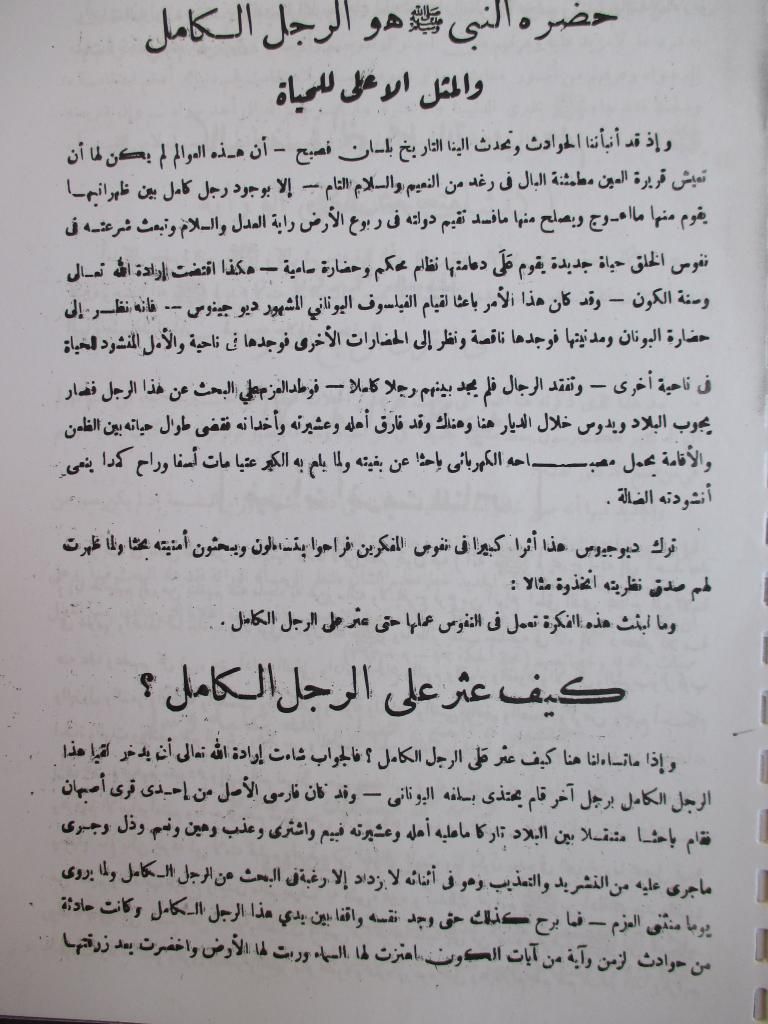 حضره النبي ﷺ هو الرجل الـكامل
والمثل الاعلى للحياة
و إذ قد أنبأننا الحوادث وتحدث الينا التاريخ بلسان فصيح – أن هـذه العوالم لم يـكن لها أن
تعيش قريرة العين مطمئنة البال فى رغد من النعيم والسلام التام – إلا بوجود رجل كامل بين ظهرانيهـا
يقوم منها مااعـوج ويصلح منها مافسد تقيم دولته فى ربوع الأرض راية العدل والسلام وتبعث شرعتـه فى
نفوس الخلق حياة جديدة يقوم على دعامتها نظام محكم وحضارة سامية – هكذا اقتضت إرادة الله تعـالى
وسنة الكون – وقد كان هذا الأمر باعثا لقيام الفيلسوف اليوناني المشهور ديو جينوس -- فانه نظـر إلى
حضارة اليونان ومدنيتها فوجدها ناقصة ونظر إلى الحضارات الأخرى فوجدها فى ناحية والأمل المنشود للحياة
فى ناحية أخرى – وتفقد الرجال فلم يجد بينهم رجلا كاملا – فوطد العزم على البحث عن هذا الرجل فصار
يجوب البلاد ويدوس خلال الديار هنا وهناك وقد فارق أهله وعشيرته وأخدانه فقضى طوال حياته بين الظعن
والأقامة يحمل مصبـــاحه الكهربائى باحثا عن بغيته ولما يلم به الكبر عتيا مات أسفا وراح كمدا ينعى
أنشودته الضالة .
ترك ديوجيوس هذا أثرا كبيرا فى نفوس المفكرين فراحوا يتسائلون ويبحثون أمنيته بحثا ولما ظهرت
لهم صدق نظريته اتخذوة مثالا :
وما لبثت هذه الفكرة تعمل فى النفوس عملها حتى عثر على الرجل الكامل .
كـيف عثر على الرجل الـكامل ؟
و إذا ماتساءلنا هنا كيف عثر على الرجل الكامل ؟ فالجواب شاءت إرادة الله تعالى أن يدخر لقيا هذا
الرجل الكامل برجل آخر قام يحتذى بسلفه اليونانى – وقد كان فارسى الأصل من إحـدى قرى أصبهان
فقام باحثـا متنقـلا بين البلاد تاركا ماعليه أهله وعشيرته فبيع واشترى وعذب وهين ونعم وذل وجـرى
ماجرى عليه من التشريد والتعذيب وهو فى أثنائه لا يزداد إلا رغبة فى البحث عن الرجل الـكامل ولما يروى
يوما منثنى العزم – فما برح كذلك حتى وجد نفسه واقفا بين يدي هذا الرجل الـكامل وكانت حادثة
من حوادث لزمن وآية من آيات الكون اهتزت لها السماء وربت لها الأرض واخضرت بعد زرقتهـا